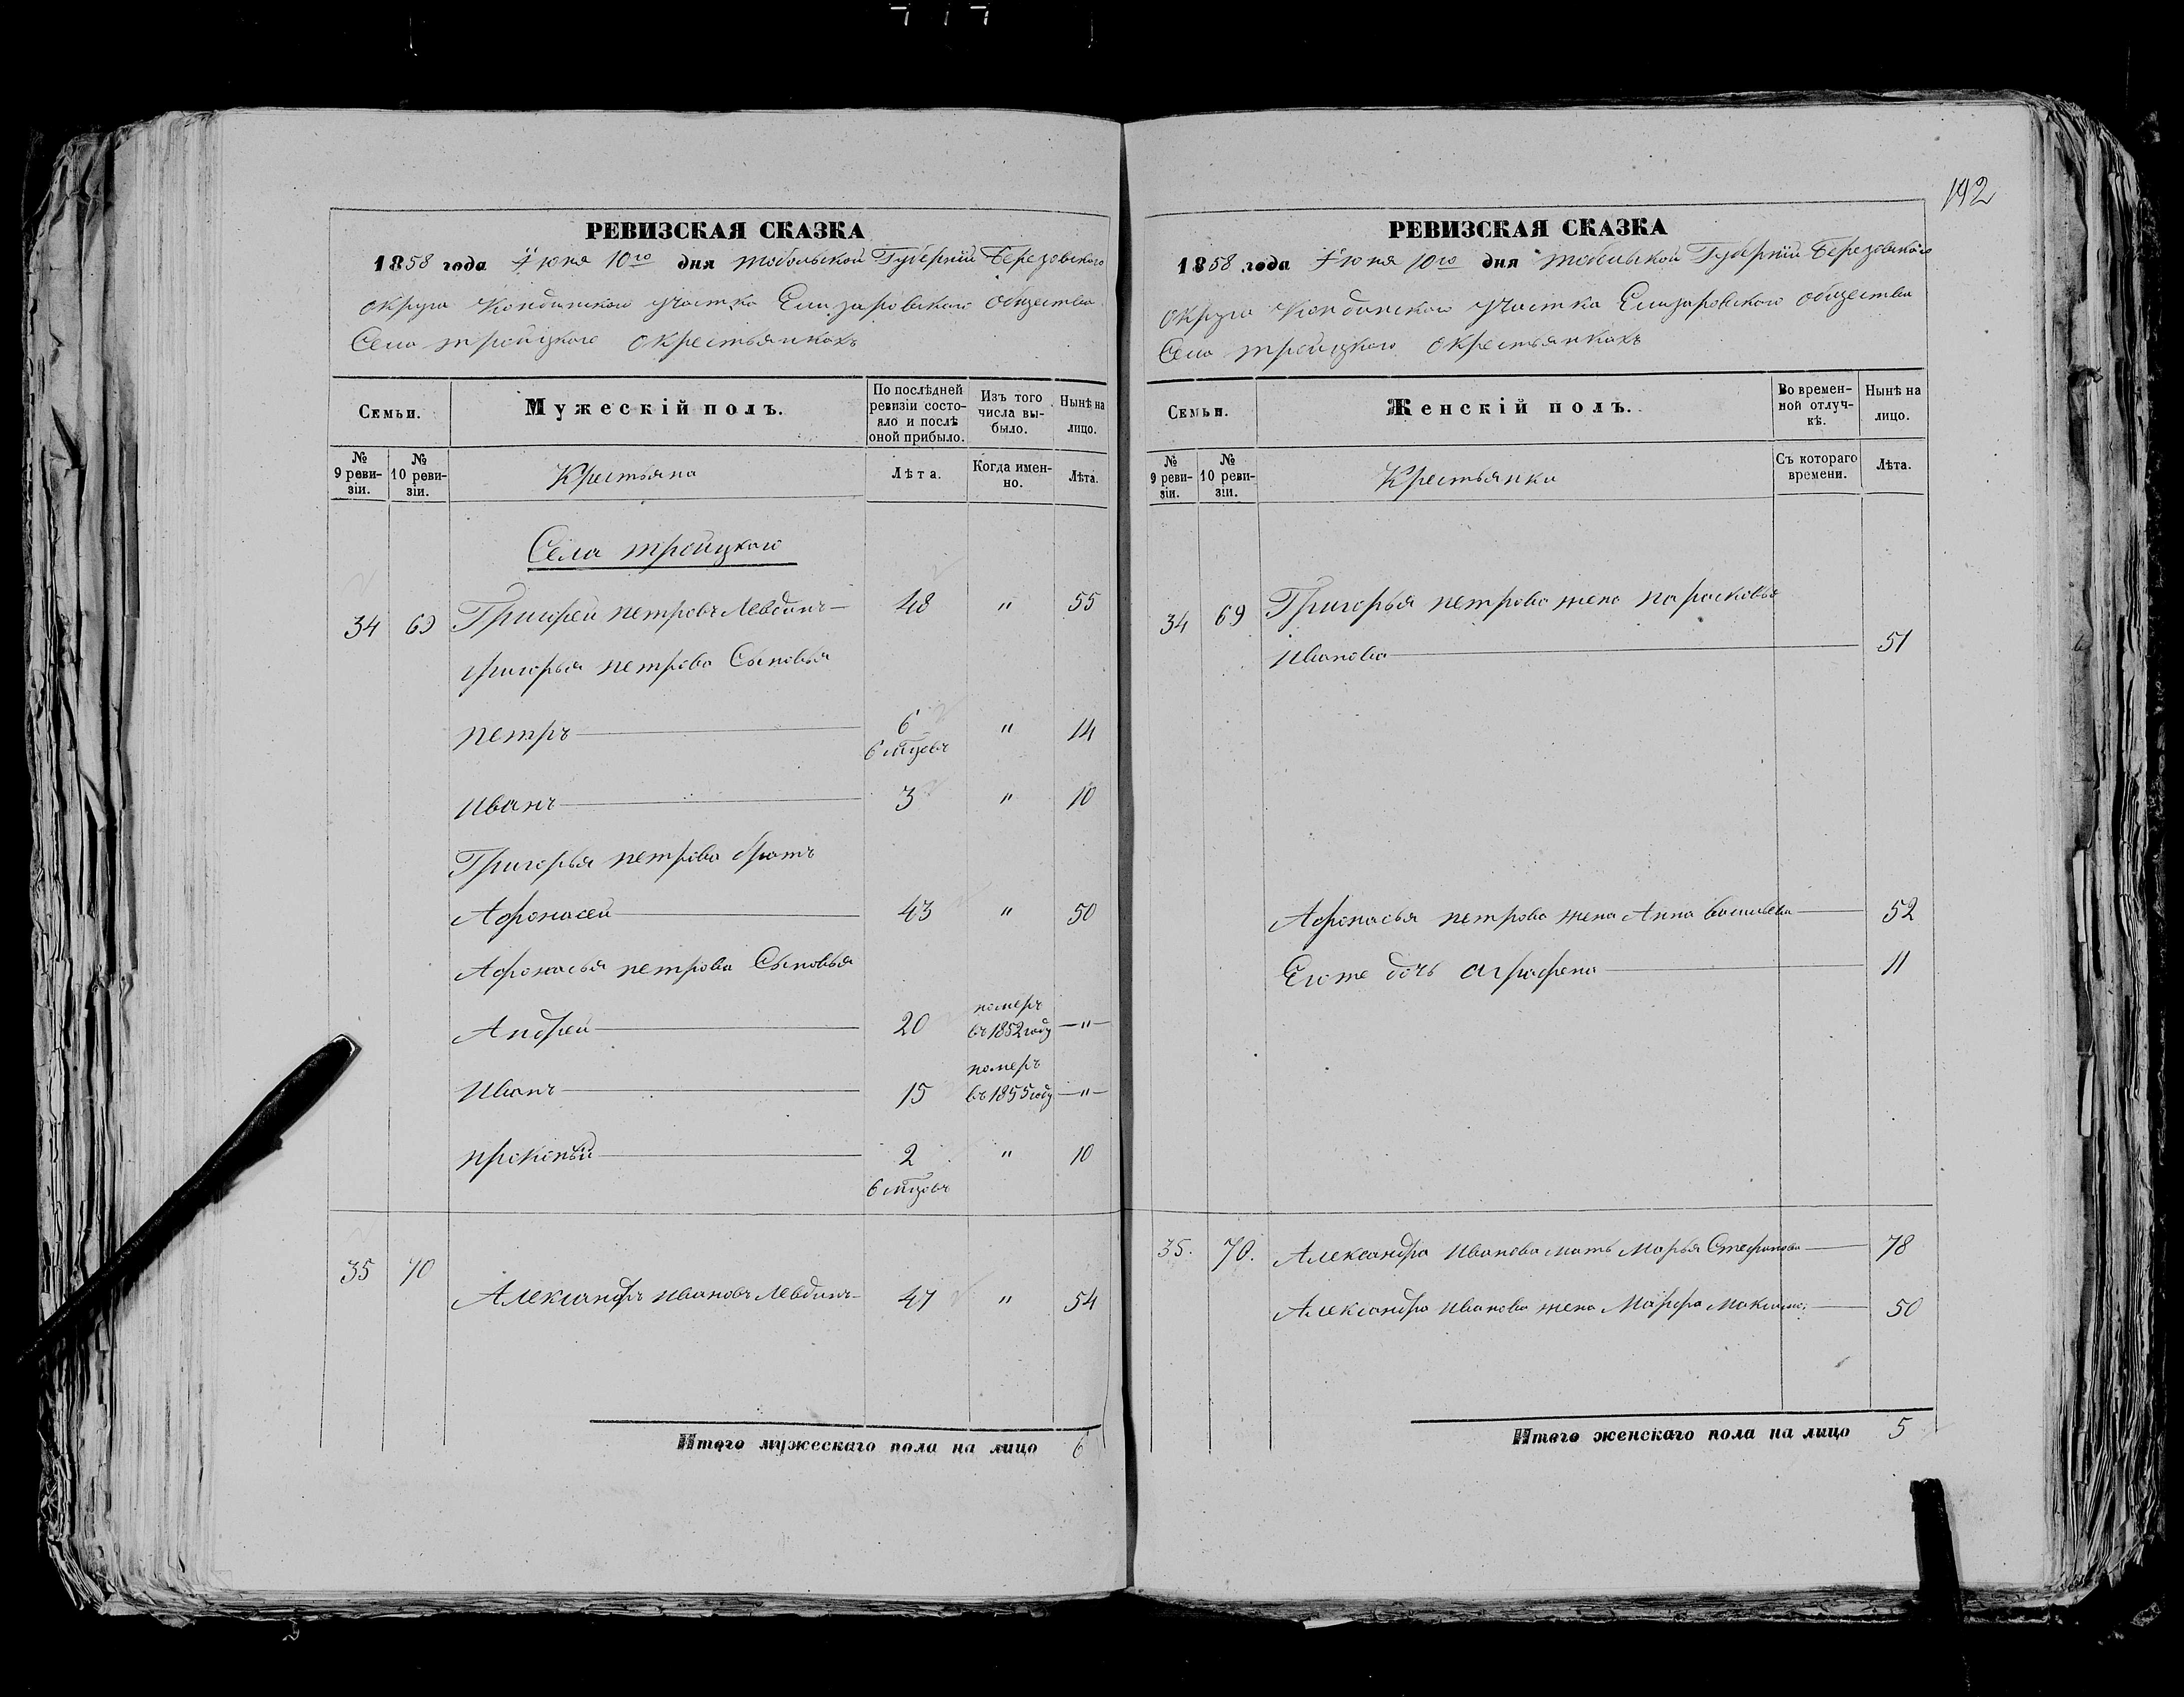 192
РЕВИЗСКАЯ СКАЗКА
1858 года Июня 10го дня Тобольской Губернии Березовского
округа Кондинского участка Елизаровского общества
Села троицкого о крестьянахъ
Семьи.
Мужескій полъ.
По послѣдней ревизіи состояло и послѣ оной прибыло.
Изъ того числа выбыло.
Нынѣ на лицо.
№ 9 ревизіи.
№ 10 ревизіи.
Крестьяна
Лѣта.
Когда именно.
Лѣта.
Села троицкого
34 69 Григорей петровъ Левдинъ 48 " 55
григорья петрова Сыновья
петръ 6 " 14
6 мцовъ
иванъ 3 " 10
Григорья петрова братъ
Афонасей 43 " 50
Афонасья петрова Сыновья
Андрей 20 померъ въ 1852 году — " —
Иванъ 15 померъ въ 1855 году — " —
прокопей 2 " 10
6 мцовъ
35 70 Александръ ивановъ Левдинъ 47 " 54
Итого мужескаго пола на лицо 6
РЕВИЗСКАЯ СКАЗКА
1858 года Июня 10го дня Тобольской Губернии Березовского
округа Кондинского участка Елизаровского общества
Села троицкого о крестьянкахъ
Семьи.
Женскій полъ.
Во временной отлучкѣ.
Нынѣ на лицо.
№ 9 ревизіи.
№ 10 ревизіи.
Крестьянки
Съ котораго времени.
Лѣта.
34 69 Григорья петрова жена парасковья
иванова 51
Афонасья петрова жена Анна васильева 52
Егоже дочь аграфена 11
35. 70. Александра иванова мать Марья Стефанова 78
Александра иванова жена Марфа Максимо: 50
Итого женскаго пола на лицо 5